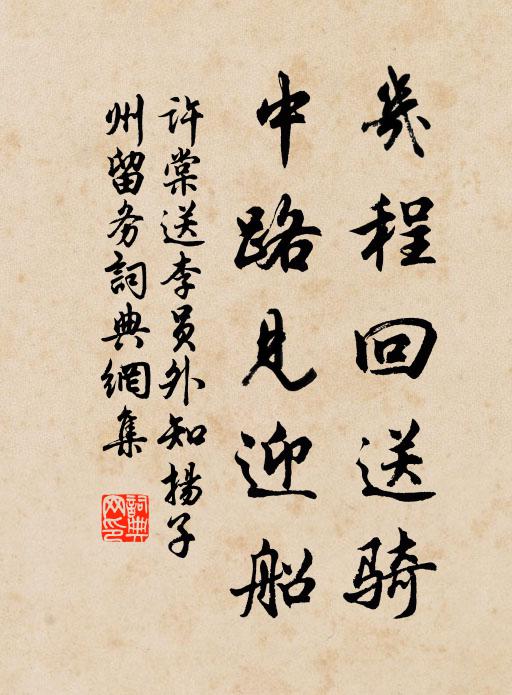 几程回送骑
中路见迎船
许棠送李员外知揚子
州留务詞典網集
詞典
网印